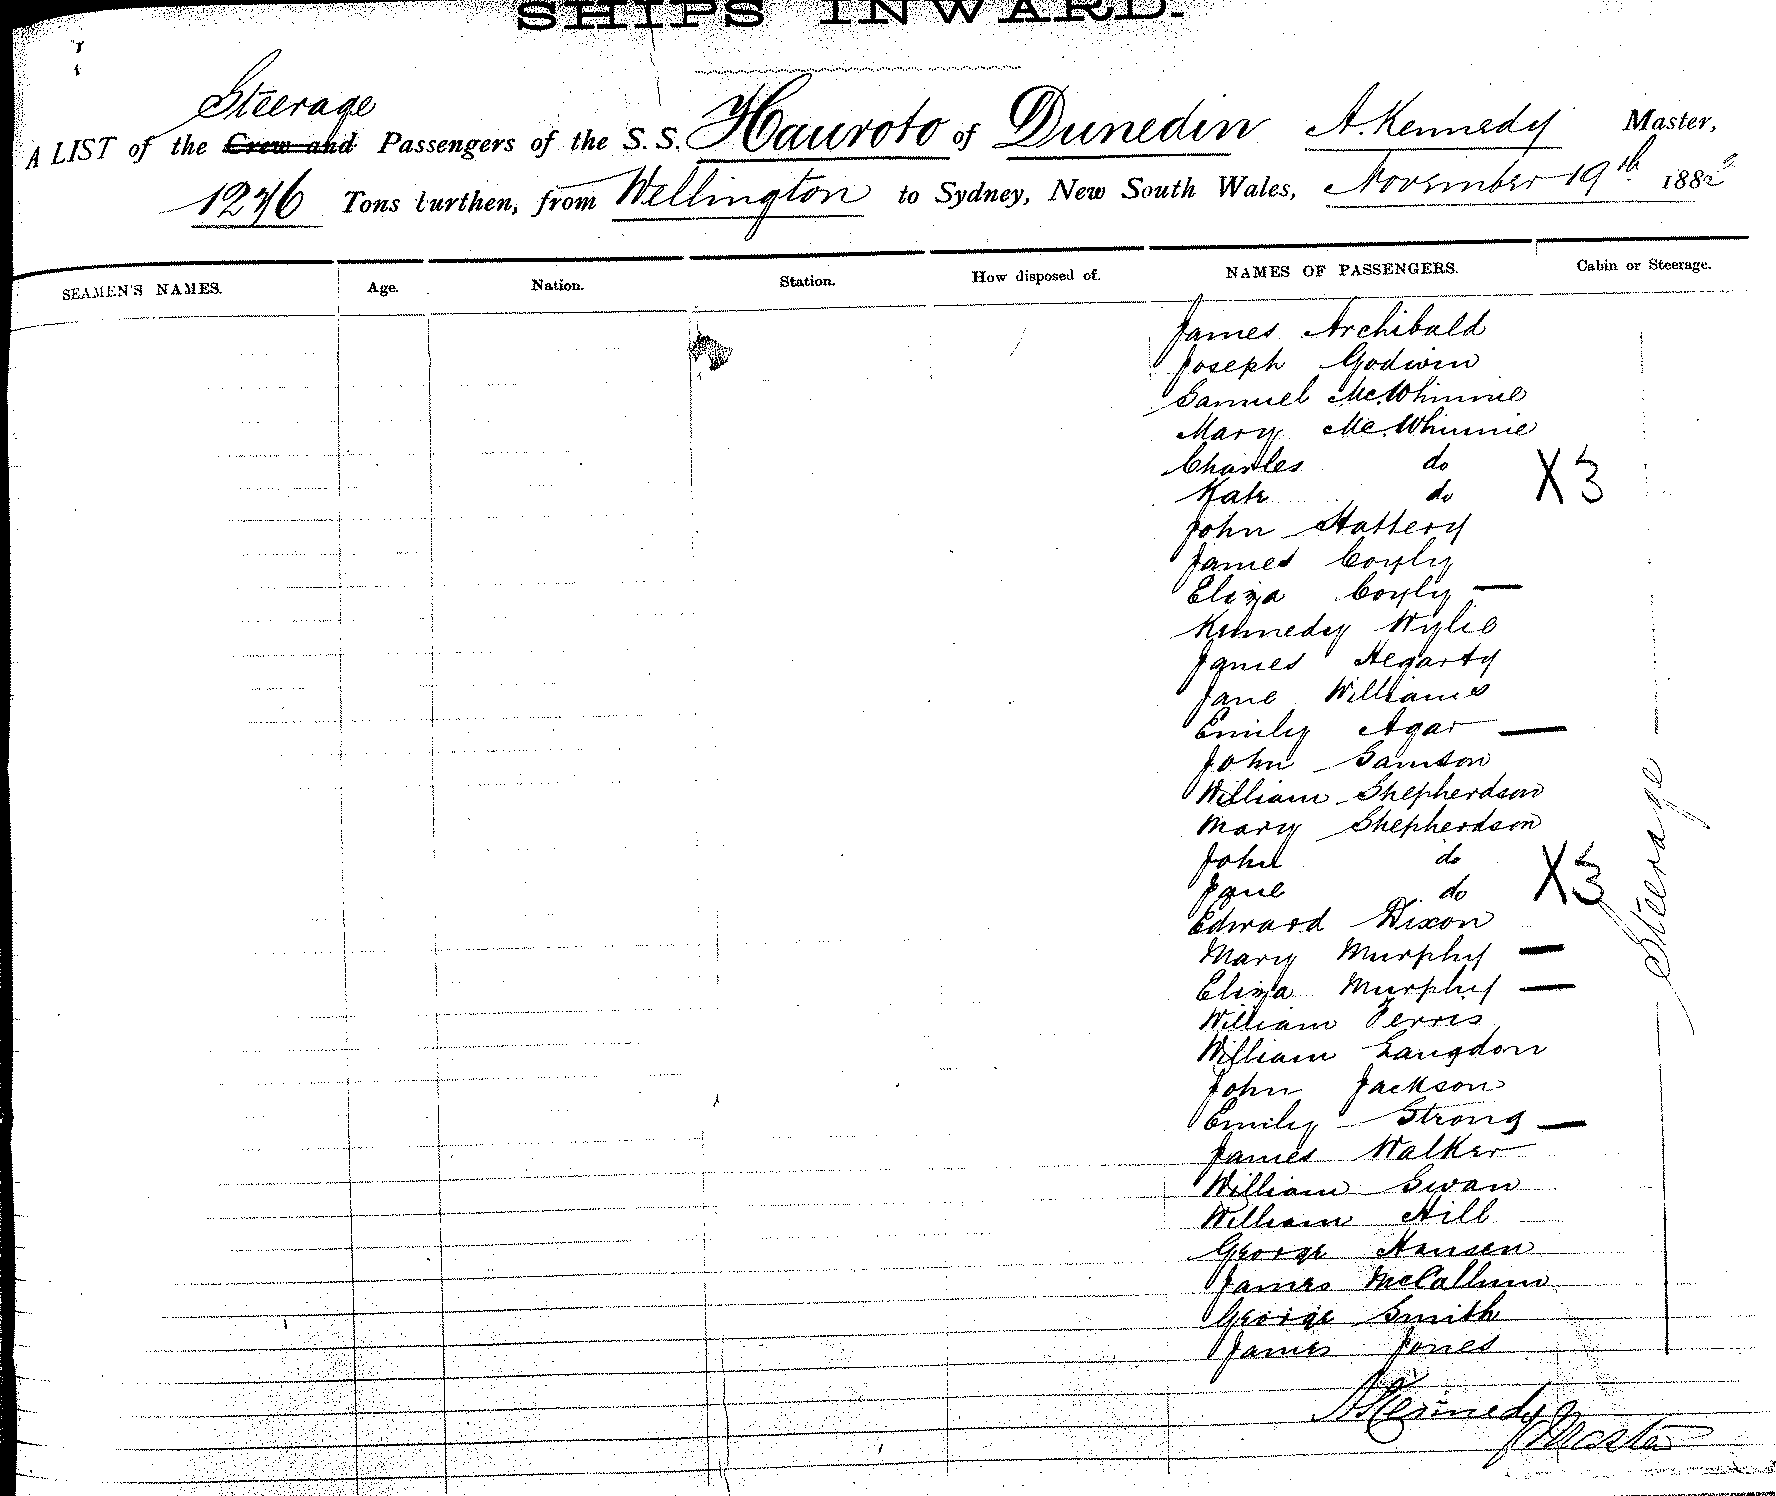 SHIPS INWARD.
Steerage
A LIST of the Crew and Passengers of the S.S. Hauroto of Dunedin A. Kennedy Master,
1276 Tons burthen, from Wellington to Sydney, New South Wales, November 19th 188
SEAMEN'S NAMES. Age. Nation. Station. How disposed of. NAMES OF PASSENGERS. Cabin or Steerage.
James Archibald
Joseph Godwin
Samuel McWhinnie
Mary McWhinnie
Charles do
Kate do X3
John Slattery
James Coyly
Eliza Coyly —
Kennedy Wylie
James Hegarty
Jane Williams
Emily Agar —
John Samson
William Shepherdson
Mary Shepherdson
John do
Jane do X3
Edward Dixon
Mary Murphy —
Eliza Murphy —
William Ferris
William Langdon
John Jackson
Emily Strong —
James Walker
William Swan
William Hill
George Hansen
James McCallum
George Smith
James Jones
Steerage
A Kennedy
Master